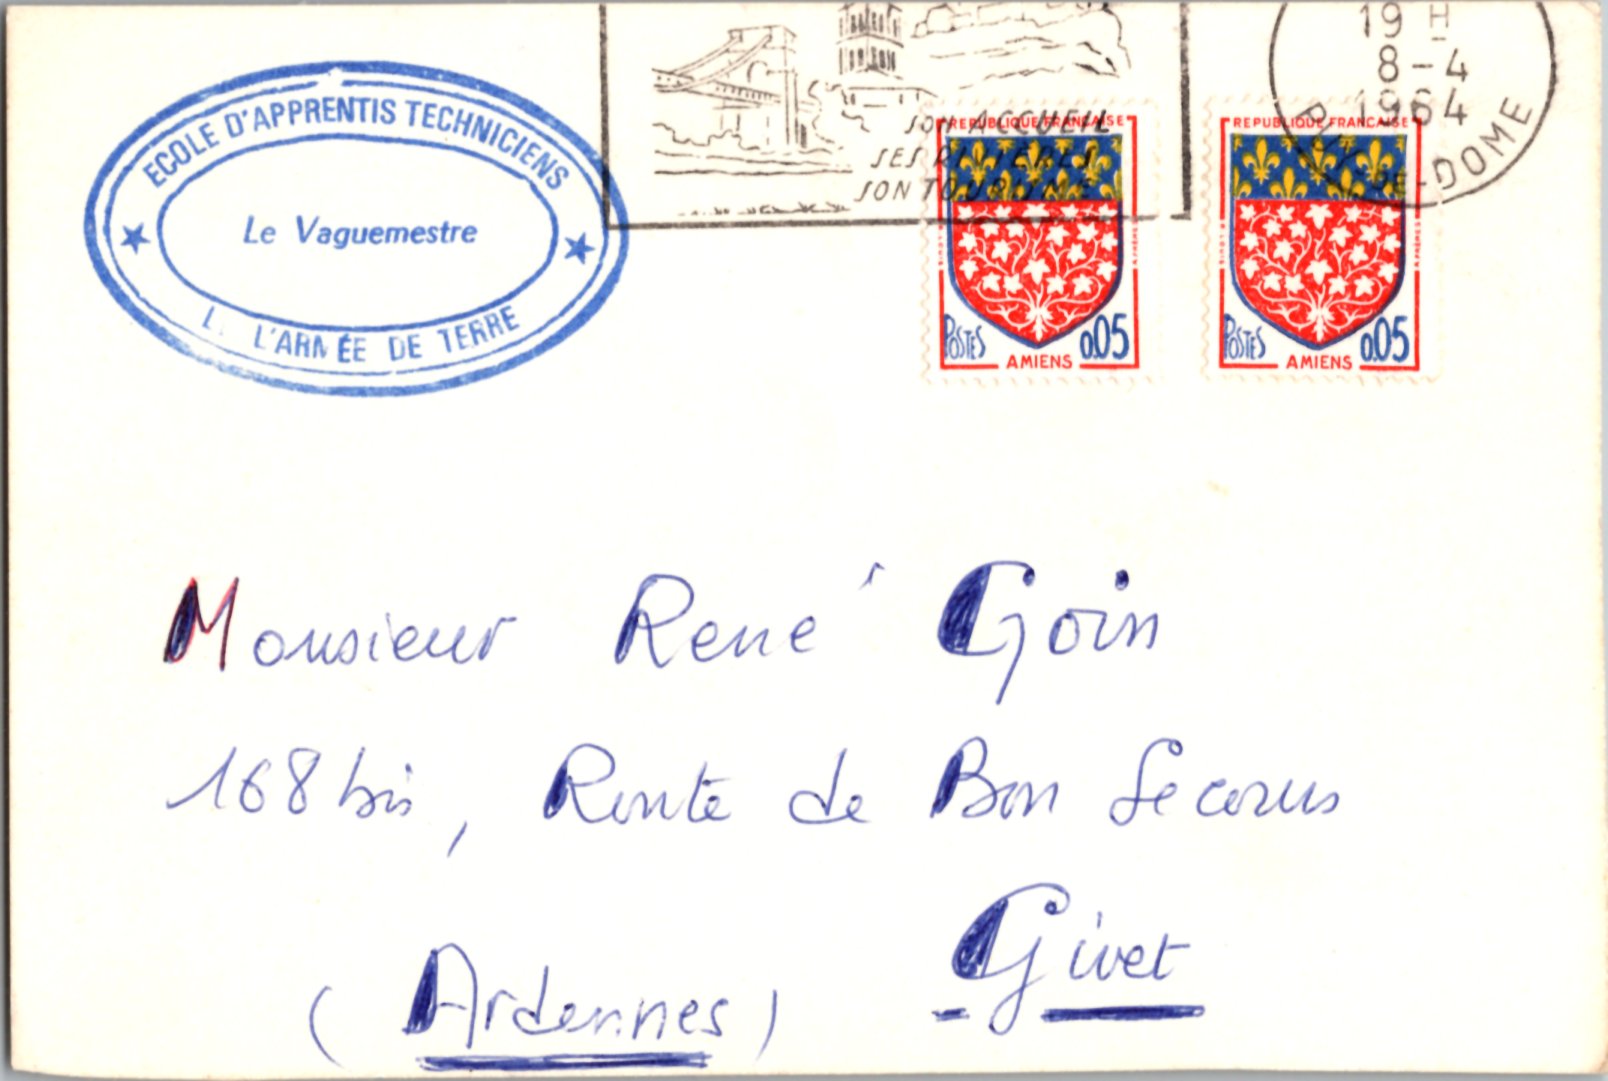 ECOLE D'APPRENTIS TECHNICIENS
Le Vaguemestre
L'ARMÉE DE TERRE
SON ACCUEIL
SES
SON TOURISME
19 H
8-4
1964
PUY-DE-DOME
REPUBLIQUE FRANÇAISE
POSTES
0.05
AMIENS
REPUBLIQUE FRANÇAISE
POSTES
0.05
AMIENS
Monsieur René Goin
168 bis, Route de Bon Secours
Givet
(Ardennes)